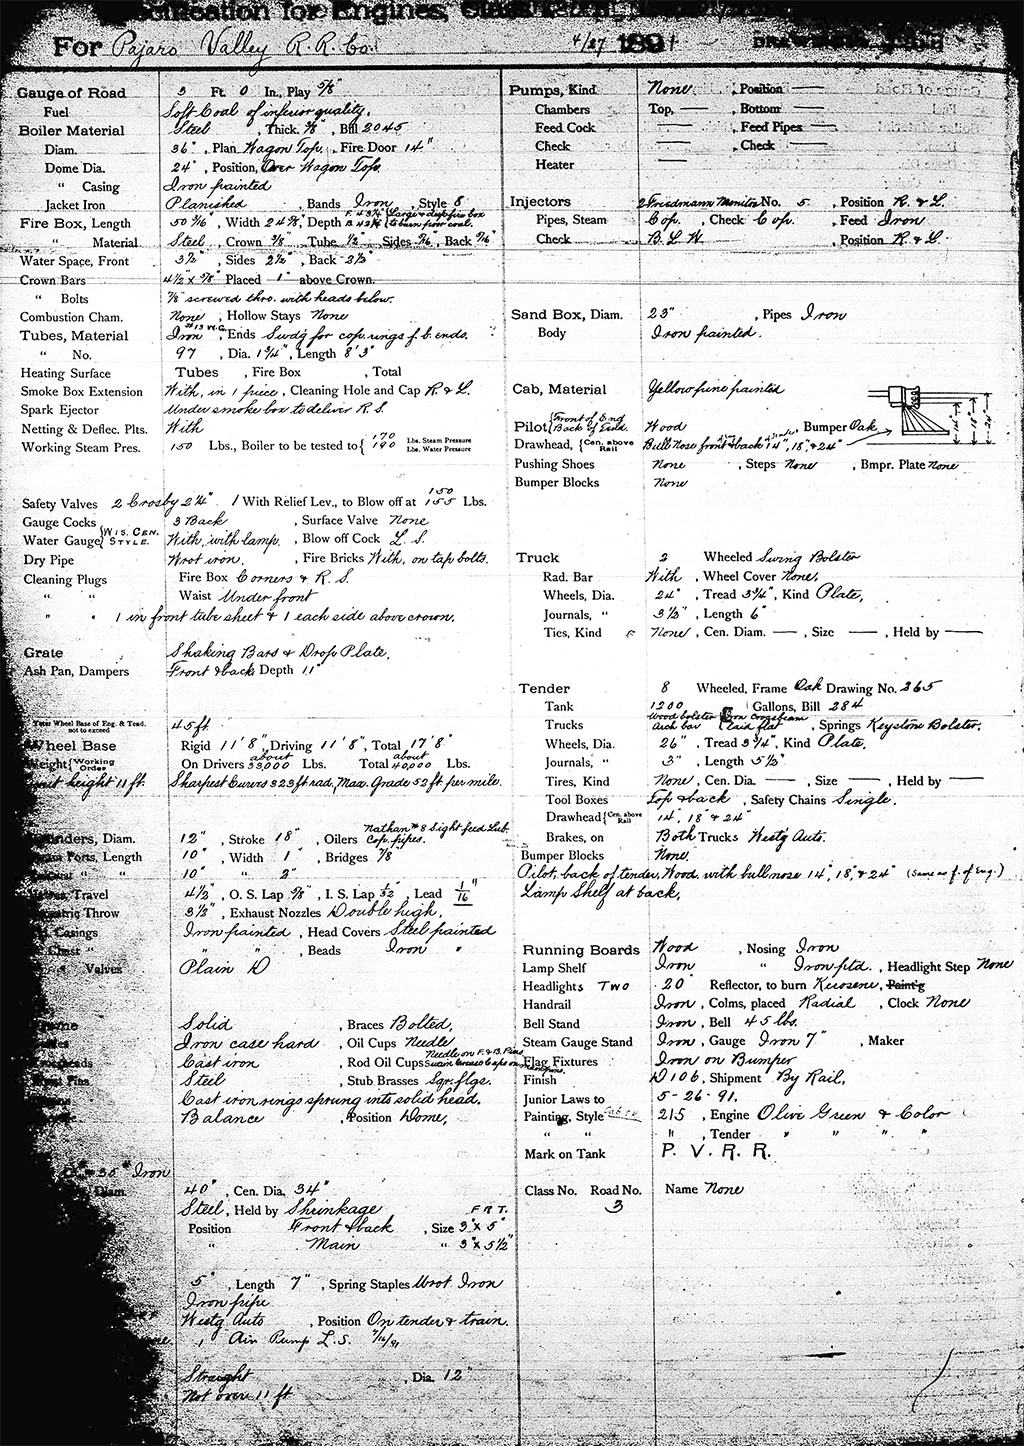 Specification for Engines, Class
For Pajaro Valley R. R. Co. 4/27 1891
Gauge of Road 3 Ft. 0 In., Play 5/8"
Fuel Soft Coal of inferior quality.
Boiler Material Steel , Thick. 3/8" , Bill 2045
Diam. 36" , Plan Wagon Top , Fire Door 14"
Dome Dia. 24" , Position, Over Wagon Top.
" Casing Iron painted
Jacket Iron Planished , Bands Iron , Style 8
Fire Box, Length 50 3/16" , Width 24 3/8" Depth F. B. { Large & deep fire box to burn poor coal.
" Material Steel , Crown 3/8" Tube 1/2" Sides 5/16 , Back 5/16"
Water Space, Front 3 1/2" , Sides 2 1/2" , Back 2 1/2"
Crown Bars 4 1/2" x 5/8" Placed 1" above Crown.
" Bolts 7/8" screwed thro. with heads below.
Combustion Cham. None , Hollow Stays None
Tubes, Material Iron #13 W.G. , Ends Swdg for cop. rings f. b. ends.
" No. 97 , Dia. 1 3/4" , Length 8' 3"
Heating Surface Tubes , Fire Box , Total
Smoke Box Extension With, in 1 piece , Cleaning Hole and Cap R. & L.
Spark Ejector Under smoke box to deliver R. S.
Netting & Deflec. Plts. With
Working Steam Pres. 150 Lbs., Boiler to be tested to { 170 Lbs. Steam Pressure 190 Lbs. Water Pressure
Safety Valves 2 Crosby 2 1/4" 1 With Relief Lev., to Blow off at 150 155 Lbs.
Gauge Cocks 3 Back , Surface Valve None
Water Gauge { Wis. Cen. Style. With, with lamp. , Blow off Cock L. S.
Dry Pipe Wrot iron. , Fire Bricks With, on tap bolts.
Cleaning Plugs Fire Box Corners & R. S.
" " Waist Under front
" " 1 in front tube sheet & 1 each side above crown.
Grate Shaking Bars & Drop Plate.
Ash Pan, Dampers Front & back Depth 11"
Total Wheel Base of Eng. & Tend. not to exceed 45 ft.
Wheel Base Rigid 11' 8" , Driving 11' 8" , Total 17' 8"
Weight { Working Order On Drivers about 33,000 Lbs. Total about 40,000 Lbs.
height 11 ft. Sharpest Curvs 323 ft rad., Max. Grade 52 ft per mile.
Diam. 12" , Stroke 18" , Oilers Nathan #8 Sight feed Lub. Cop. pipes.
Ports, Length 10" , Width 1" , Bridges 7/8
" " 10" " 2"
Travel 4 1/2" , O. S. Lap 5/8" , I. S. Lap 1/32" , Lead 1/16"
Throw 3 1/2" , Exhaust Nozzles Double high.
Casings Iron painted , Head Covers Steel painted
Chest " " , Beads Iron "
Valves Plain D
Frame Solid , Braces Bolted.
Iron case hard , Oil Cups Needle
Cast iron , Rod Oil Cups Needle on F. & B. Pins
Steel , Stub Brasses Sqr. flgs.
Cast iron rings sprung into solid head.
Balance , Position Dome,
Iron
Diam. 40" , Cen. Dia. 34"
Steel , Held by Shrinkage F R T.
Position Front & back , Size 3" x 5"
" Main " 3" x 5 1/2"
5" , Length 7" , Spring Staples Wrot Iron
Iron pipe
Westg Auto , Position On tender & train.
1 Air Pump L. S. 7/16/91
Straight , Dia. 12"
Not over 11 ft
Pumps, Kind None , Position —
Chambers Top, — , Bottom —
Feed Cock — , Feed Pipes —
Check — , Check —
Heater —
Injectors 2 Friedmann Monitor No. 5 , Position R. & L.
Pipes, Steam Cop. , Check Cop. , Feed Iron
Check B. L. W. , Position R. & L.
Sand Box, Diam. 23" , Pipes Iron
Body Iron painted.
Cab, Material Yellow pine painted
Pilot { Front of End Back of Tend. Wood , Bumper Oak
Drawhead, { Cen. above Rail Bull Nose front & back 14", 18", & 24"
14" 18" 24"
Pushing Shoes None , Steps None , Bmpr. Plate None
Bumper Blocks None
Truck 2 Wheeled Swing Bolster
Rad. Bar With , Wheel Cover None,
Wheels, Dia. 24" , Tread 3 3/4" , Kind Plate,
Journals, " 3 1/2" , Length 6"
Ties, Kind None , Cen. Diam. — , Size — , Held by —
Tender 8 Wheeled, Frame Oak Drawing No. 265
Tank 1200 Gallons, Bill 284
Trucks Wood bolster Arch bar Iron crossbeam laid flat , Springs Keystone Bolster.
Wheels, Dia. 26" , Tread 3 3/4" , Kind Plate.
Journals, " 3" , Length 5 1/2"
Tires, Kind None , Cen. Dia. — , Size — , Held by —
Tool Boxes Top & back , Safety Chains Single.
Drawhead { Cen. above Rail 14", 18" & 24"
Brakes, on Both Trucks Westg Auto.
Bumper Blocks None.
Pilot, back of tender, Wood, with bull nose 14", 18", & 24" (Same as f. of Eng.)
Lamp Shelf at back,
Running Boards Wood , Nosing Iron
Lamp Shelf Iron " Iron ptd. , Headlight Step None
Headlights Two 20" Reflector, to burn Kerosene, Paint'g
Handrail Iron , Colms, placed Radial , Clock None
Bell Stand Iron , Bell 45 lbs.
Steam Gauge Stand Iron , Gauge Iron 7" , Maker
Flag Fixtures Iron on Bumper
Finish D106 , Shipment By Rail,
Junior Laws to 5-26-91.
Painting, Style 215 , Engine Olive Green & Color
" " " , Tender " " " "
Mark on Tank P. V. R. R.
Class No. Road No. 3 Name None